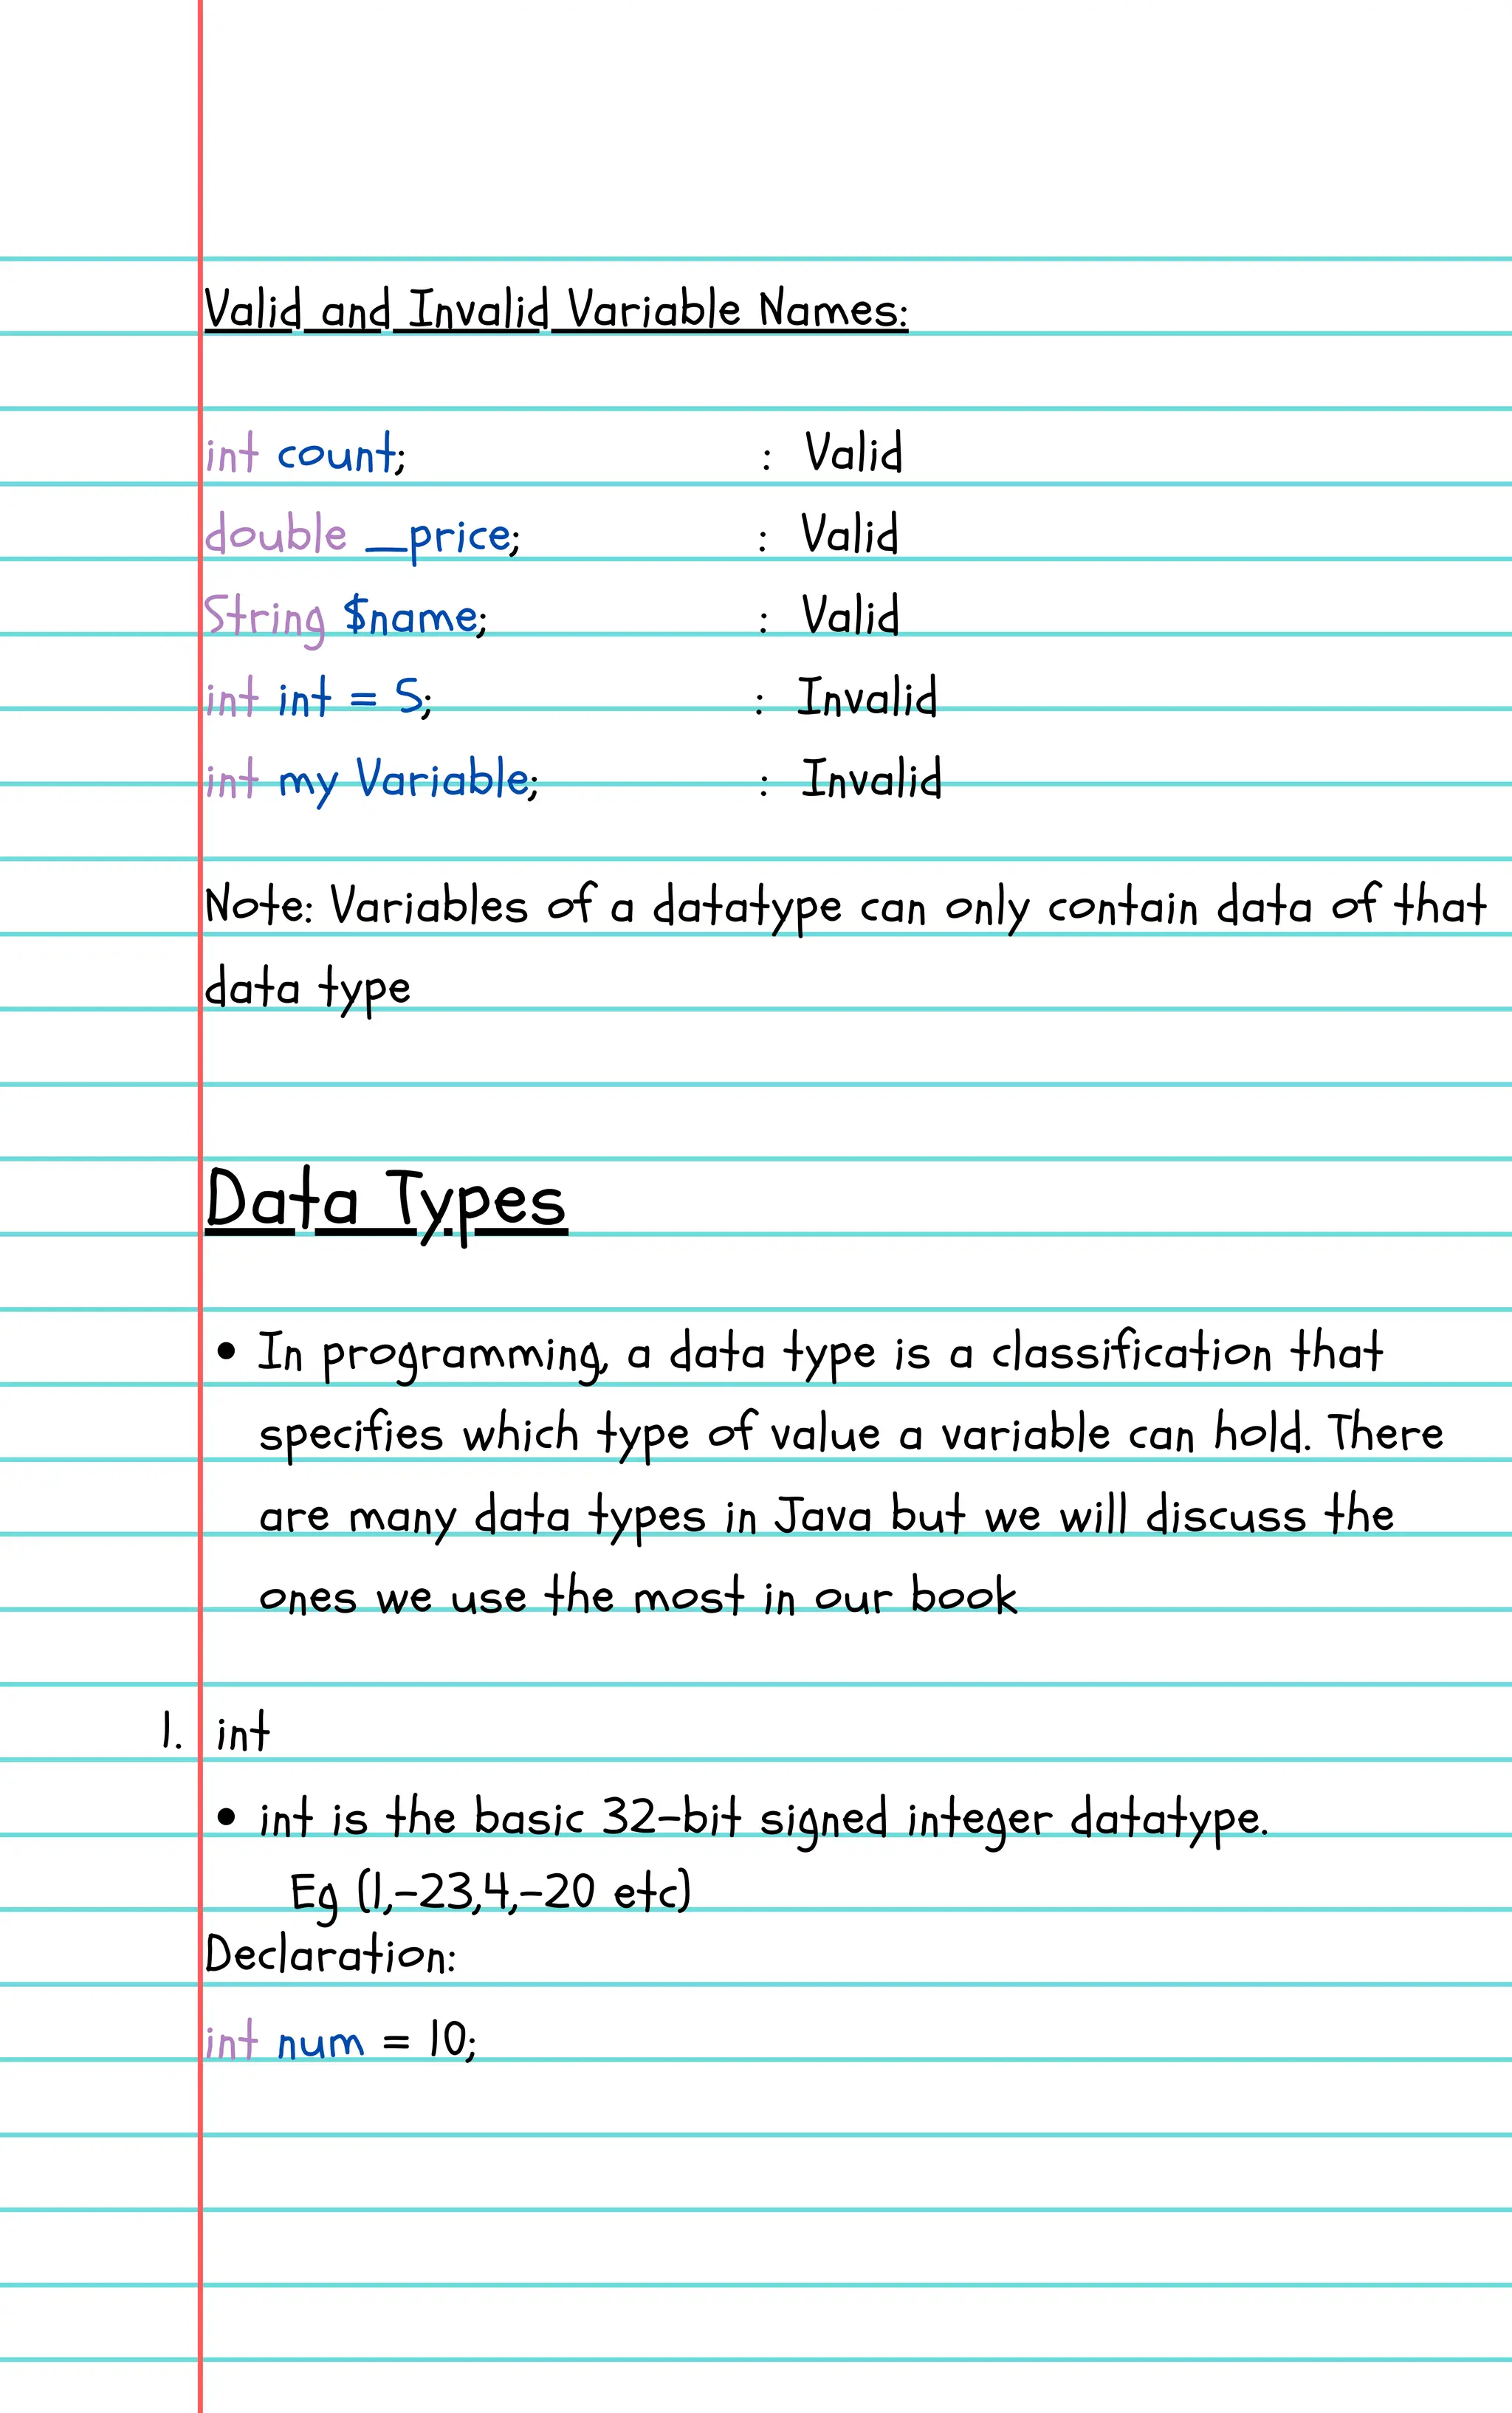 Valid and Invalid Variable Names:
int count; : Valid
double __price; : Valid
String $name; : Valid
int int = 5; : Invalid
int my Variable; : Invalid
Note: Variables of a datatype can only contain data of that
data type
Data Types
• In programming, a data type is a classification that
specifies which type of value a variable can hold. There
are many data types in Java but we will discuss the
ones we use the most in our book
1. int
• int is the basic 32-bit signed integer datatype.
Eg (1,-23,4,-20 etc)
Declaration:
int num = 10;